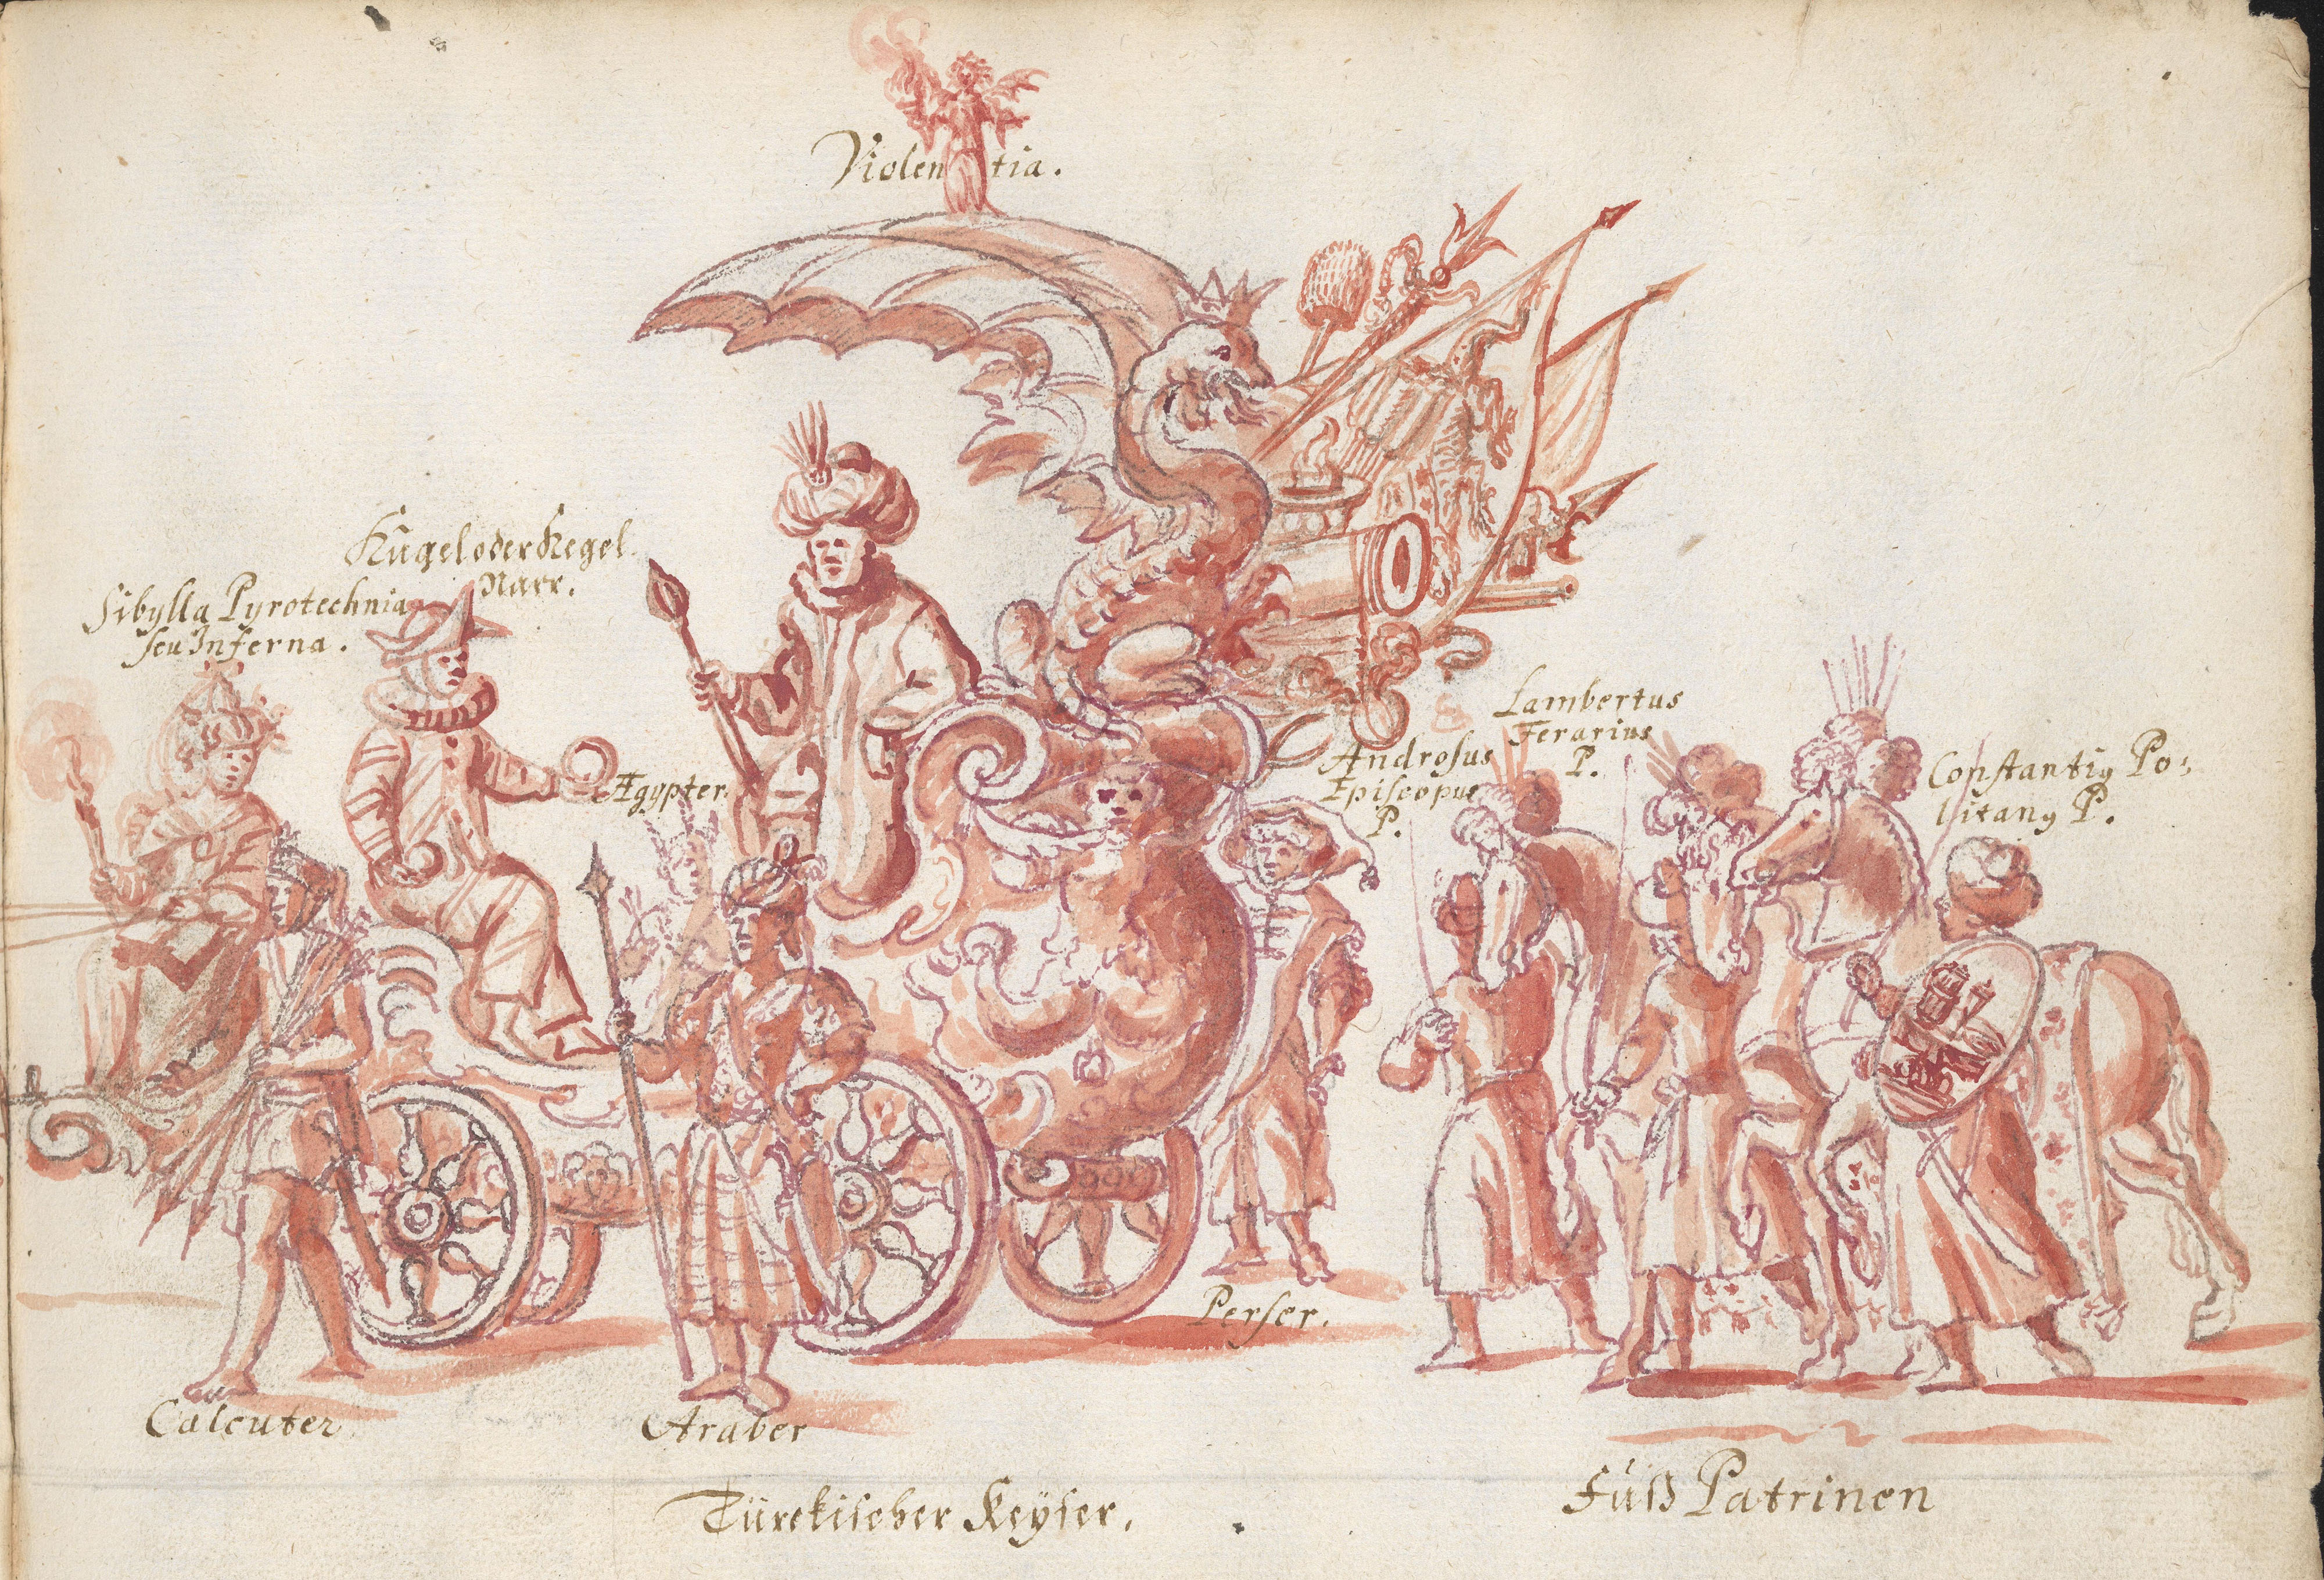 Violentia.
Kugel oder Kegel
Narr.
Sibylla Pyrotechnia
seu Inferna.
Ægypter.
Lambertus
Ferarius
P.
Androsus
Episcopus
P.
Constantin Po:
litany P.
Perser.
Calcuter
Araber
Türckischer Keÿser.
Fuß Patrinen